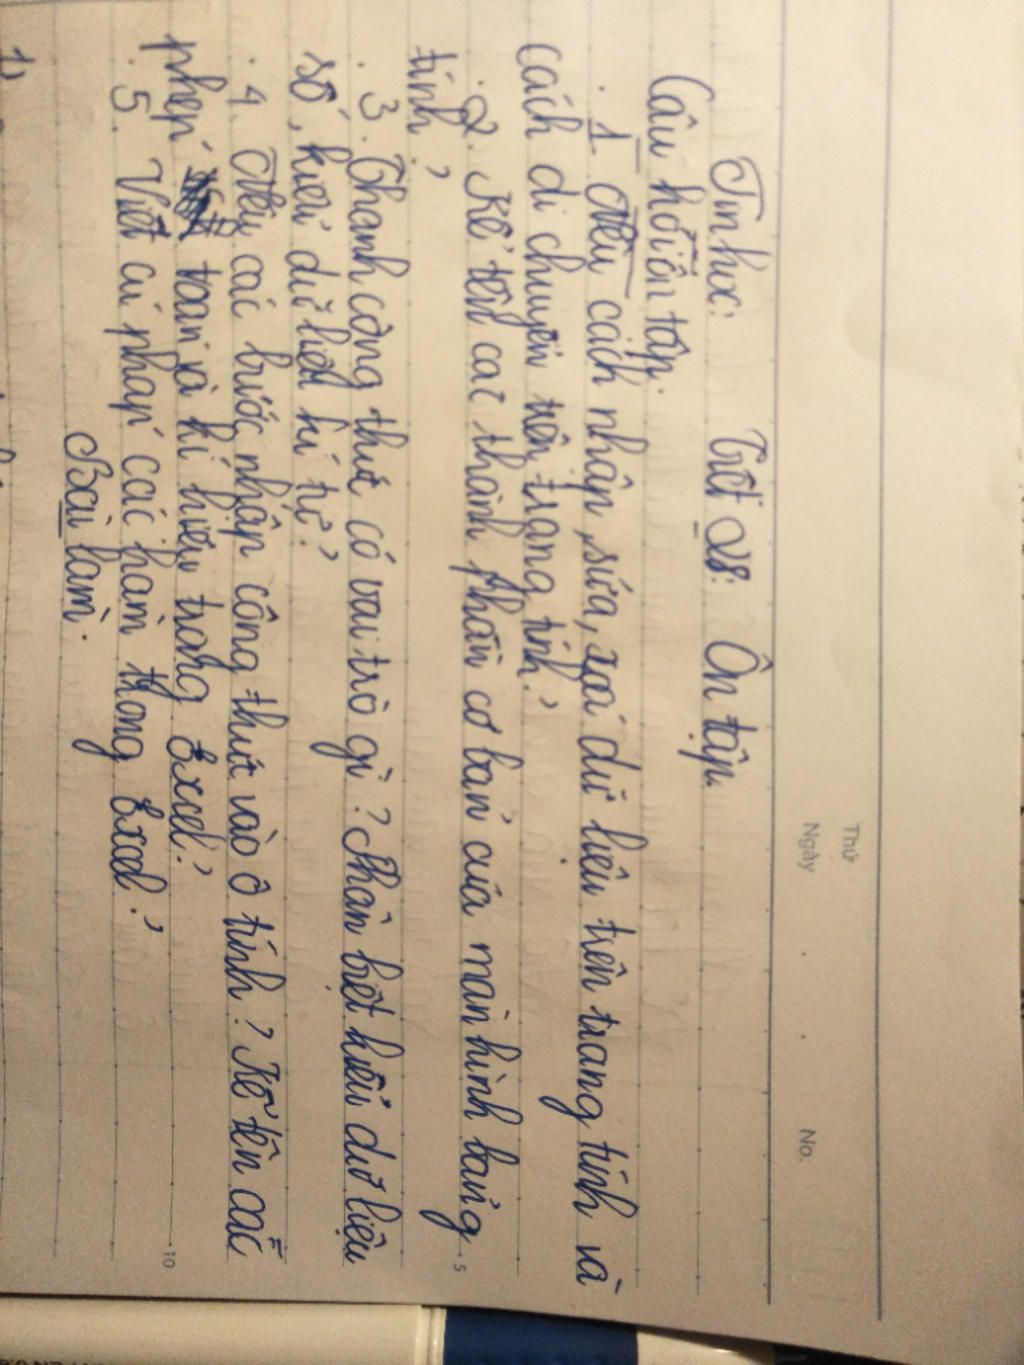 Thứ
Ngày . . No.
Tin học: Tiết 28: Ôn tập
Câu hỏi ôn tập.
1. Nêu cách nhập, sửa, xoá dữ liệu trên trang tính và
cách di chuyển trên trang tính?
2. Kể tên các thành phần cơ bản của màn hình bảng
tính?
5
3. Thanh công thức có vai trò gì? Phân biệt kiểu dữ liệu
số, kiểu dữ liệu kí tự?
4. Nêu các bước nhập công thức vào ô tính? Kể tên các
phép toán và kí hiệu trong Excel?
10
5. Viết cú pháp các hàm trong Excel?
Bài làm.